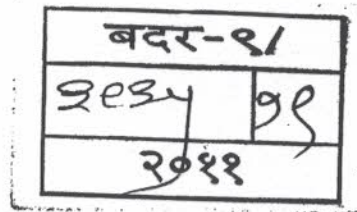 बदर-९/
२९३५ १९
२०११